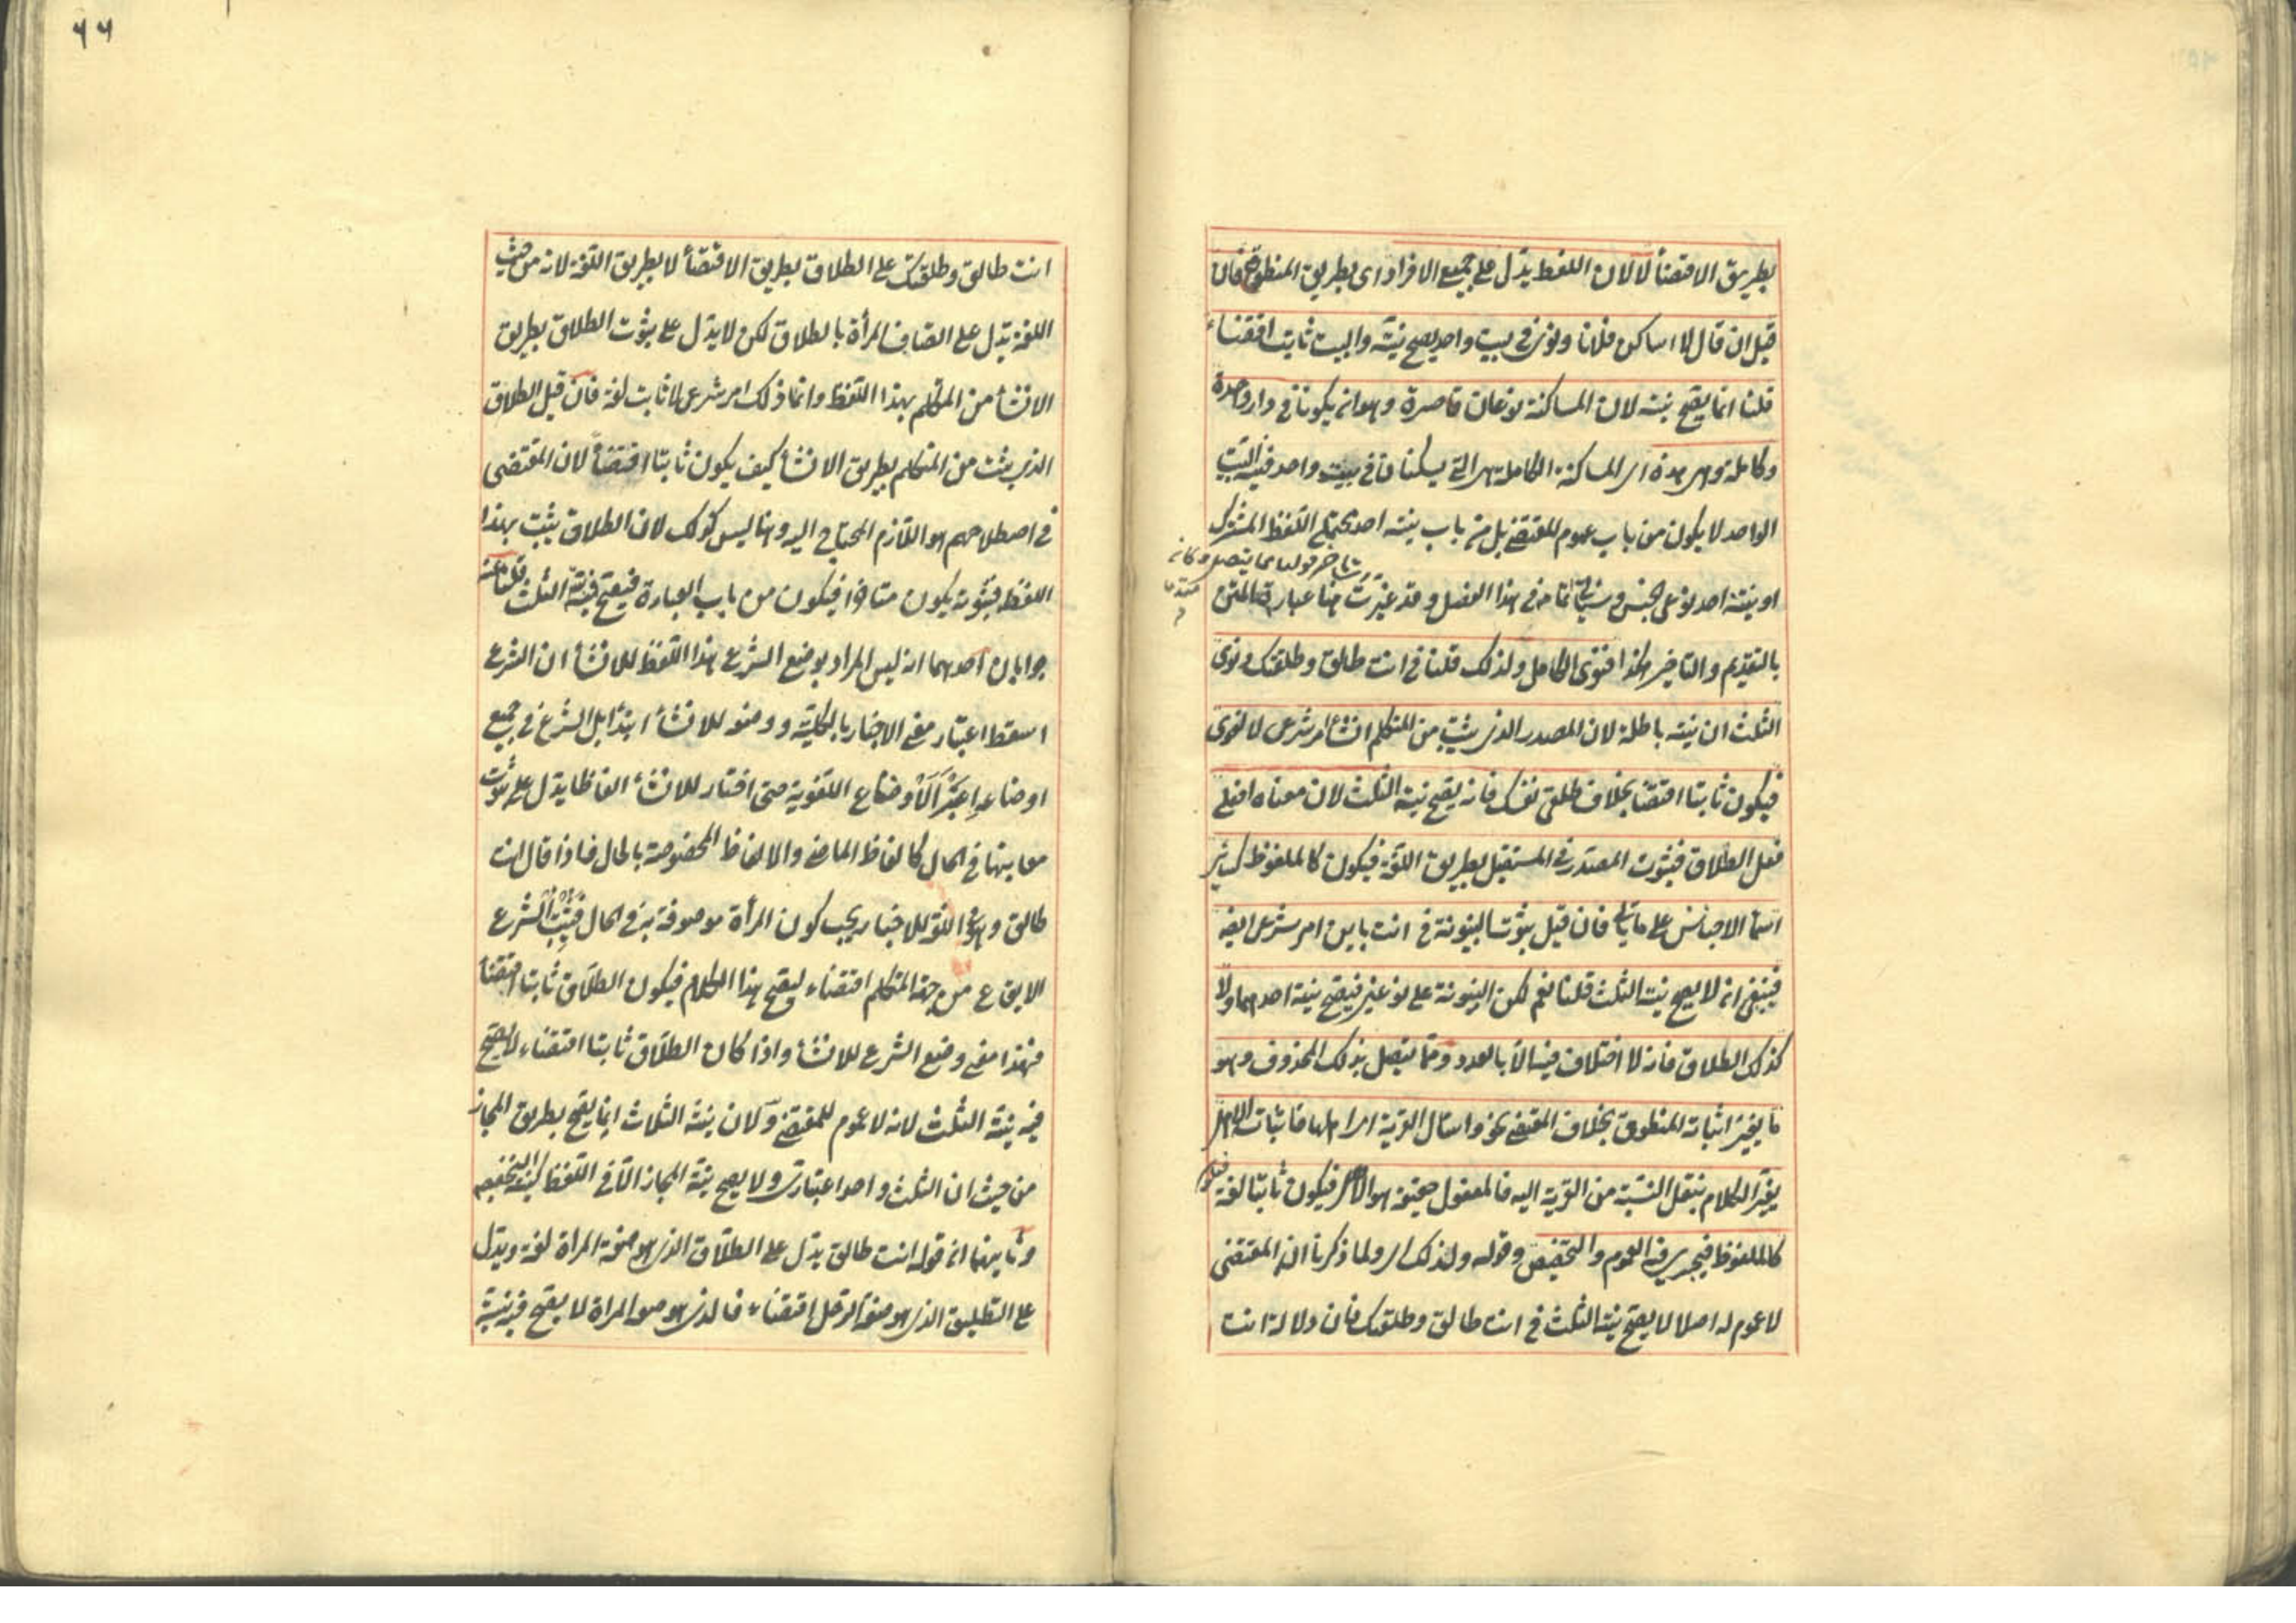 بطريق الاقتضأ لا لان اللفظ يدل على جميع الافراد اى بطريق المنطوق فان
قيل ان قال لا اساكن فلانا ونوى فى بيت واحد يصح نيته والبيت ثابت اقتضاء
قلنا انما يصح نيته لان المساكنة نوعان قاصرة وهو ان يكونا فى دار واحدة
وكاملة وهى هذه اى المساكنة الكاملة هى التى يسكنان فى بيت واحد فنية البيت
الواحد لا يكون من باب عموم المقتضى بل من باب نية احد محتملى اللفظ المشترك
او نية احد نوعى الجنس وسيأتى تمامه فى هذا الفصل وقد غيرت هنا عبارة المتن
بالتقديم والتأخير هكذا فنوى الكامل ولذلك قلنا فى انت طالق وطلقتك ونوى
الثلث ان نيته باطلة لان المصدر الذى يثبت من المتكلم انشأ امر شرعى لا لغوى
فيكون ثابتا اقتضأ بخلاف طلقى نفسك فانه يصح نية الثلث لان معناه افعلى
فعل الطلاق فثبوت المصدر فى المستقبل بطريق اللغة فيكون كالملفوظ كسائر
اسمأ الاجناس على ما يأتى فان قيل ثبوت البينونة فى انت باين امر شرعى ايضا
فينبغى ان لا يصح نية الثلث قلنا نعم لكن البينونة على نوعين فيصح نية احدهما ولا
كذلك الطلاق فانه لا اختلاف فيه الا بالعدد ومما يتصل بذلك المحذوف وهو
ما يغير اثباته المنطوق بخلاف المقتضى نحو واسأل القرية اى اهلها فاثبات الاهل
يغير الكلام بنقل النسبة من القرية اليه فالمفعول حقيقة هو الاهل فيكون ثابتا لغة فيكون
كالملفوظ فيجرى فيه العموم والتخصيص وقوله ولذلك اى ولما ذكرنا ان المقتضى
لا عموم له اصلا لا يصح نية الثلث فى انت طالق وطلقتك فان دلالة انت
٦٦
انت طالق وطلقتك على الطلاق بطريق الاقتضأ لا بطريق اللغة لانه من حيث
اللغة يدل على اتصاف المرأة بالطلاق لكن لا يدل على ثبوت الطلاق بطريق
الانشأ من المتكلم بهذا اللفظ وانما ذلك امر شرعى لا ثابت لغة فان قيل الطلاق
الذى يثبت من المتكلم بطريق الانشأ كيف يكون ثابتا اقتضأ لان المقتضى
فى اصطلاحهم هو اللازم المحتاج اليه وهنا ليس كذلك لان الطلاق يثبت بهذا
اللفظ فثبوته يكون متأخرا فيكون من باب العبارة فيصح فيه نية الثلث قلنا عنه
جوابان احدهما انه ليس المراد بوضع الشرع هذا اللفظ للانشأ ان الشرع
اسقط اعتبار معنى الاخبار بالكلية ووضعه للانشأ ابتدأ بل الشرع فى جميع
اوضاعه اعتبر الاوضاع اللغوية حتى اختار للانشأ الفاظا يدل على ثبوت
معانيها فى الحال كالفاظ الماضى والالفاظ المخصوصة بالحال فاذا قال انت
طالق وهو فى اللغة للاخبار يجب كون المرأة موصوفة به فى الحال فيثبت الشرع
الايقاع من جهة المتكلم اقتضاء ليصح هذا الكلام فيكون الطلاق ثابتا اقتضأ
فهذا معنى وضع الشرع للانشأ واذا كان الطلاق ثابتا اقتضاء لا يصح
فيه نية الثلث لانه لا عموم للمقتضى ولان نية الثلاث انما يصح بطريق المجاز
من حيث ان الثلث واحد اعتبارى ولا يصح نية المجاز الا فى اللفظ كنية التخصيص
وثانيهما ان قوله انت طالق يدل على الطلاق الذى هو صفة المراة لغة ويدل
على التطليق الذى هو صفة الرجل اقتضاء فالذى هو صفة المراة لا يصح فيه نية